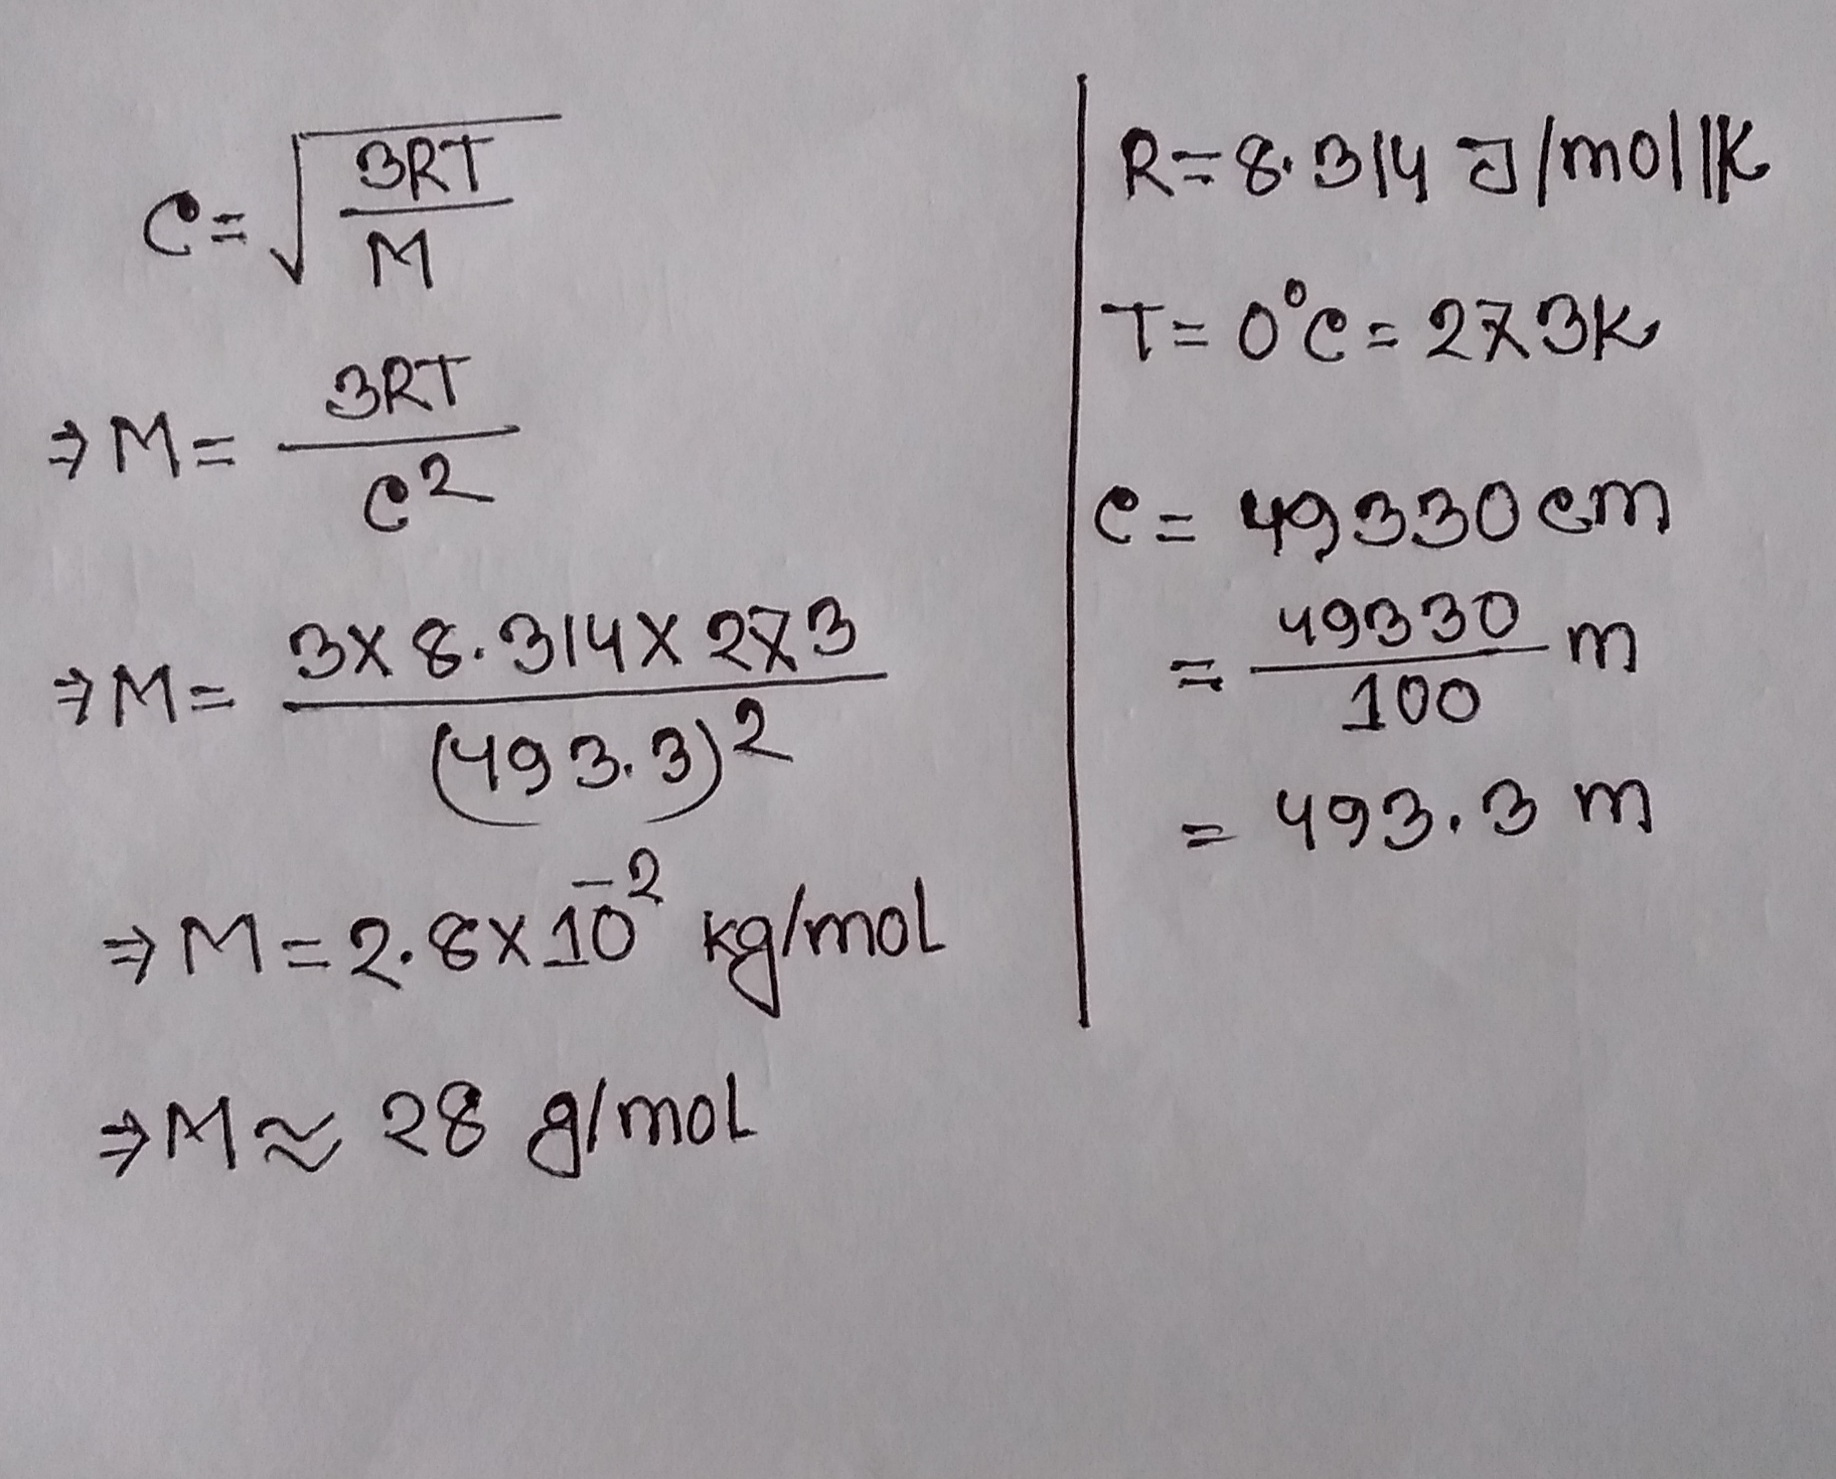 C = √(3RT/M)
⇒ M = 3RT/C²
⇒ M = 3×8.314×273/(493.3)²
⇒ M = 2.8×10⁻² kg/mol
⇒ M ≈ 28 g/mol
R = 8.314 J/mol/K
T = 0°C = 273K
C = 49330 cm
= 49330/100 m
= 493.3 m